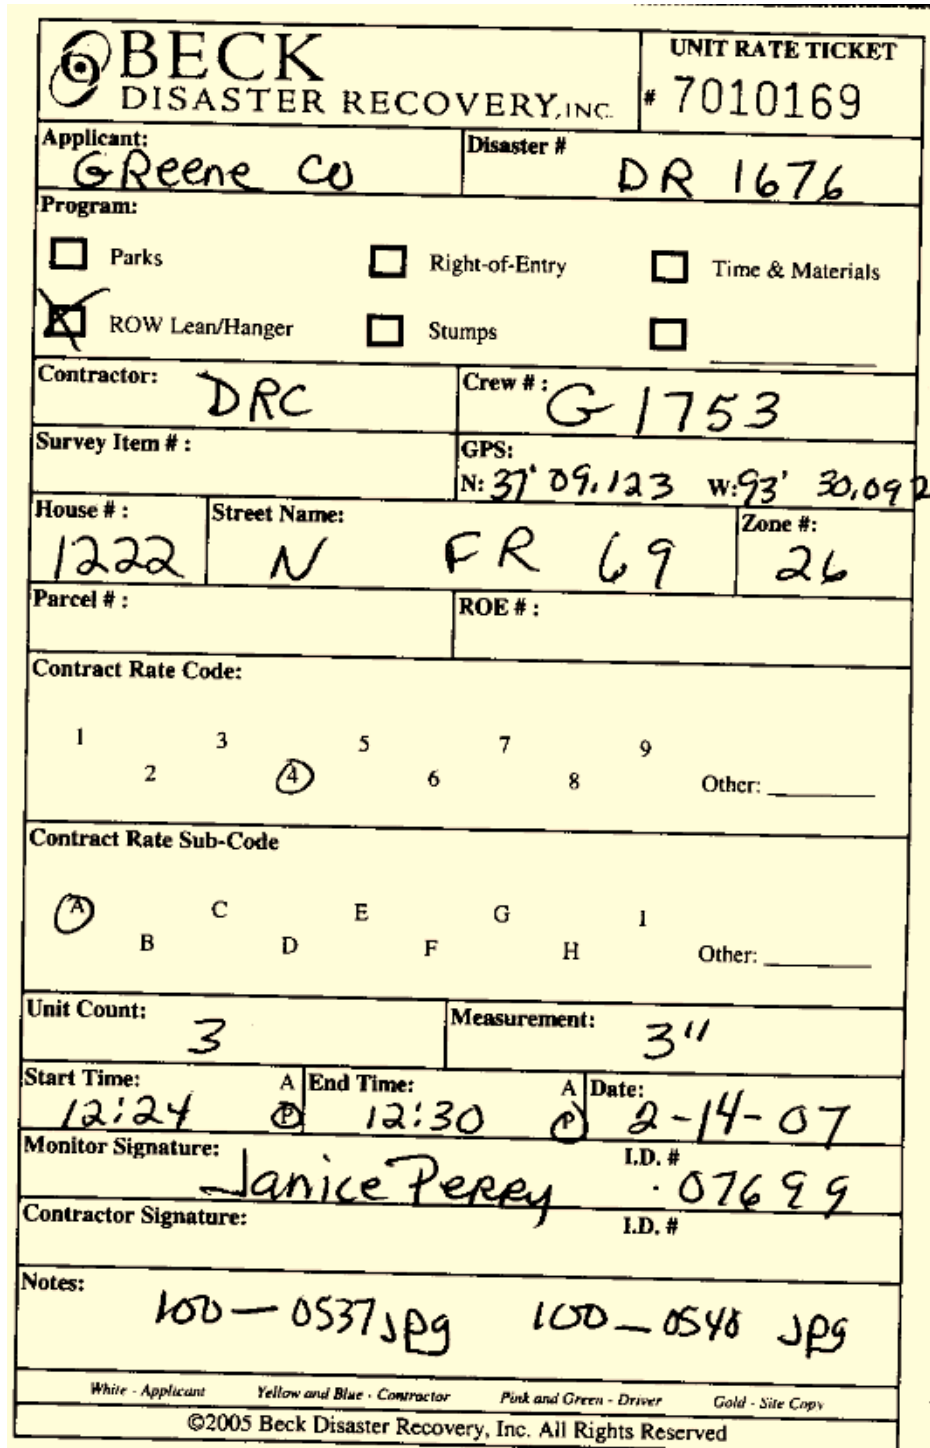 BECK
DISASTER RECOVERY, INC.
UNIT RATE TICKET
# 7010169
Applicant: GReene CO
Disaster # DR 1676
Program:
Parks Right-of-Entry Time & Materials
ROW Lean/Hanger Stumps
Contractor: DRC
Crew # : G 1753
Survey Item # :
GPS:
N: 37' 09.123 W: 93' 30.092
House # : 1222
Street Name: N FR 69
Zone #: 26
Parcel # :
ROE # :
Contract Rate Code:
1 3 5 7 9
2 4 6 8 Other:
Contract Rate Sub-Code
A C E G I
B D F H Other:
Unit Count: 3
Measurement: 3"
Start Time: 12:24 A P
End Time: 12:30 A P
Date: 2-14-07
Monitor Signature: Janice Perry
I.D. # 07699
Contractor Signature:
I.D. #
Notes:
100-0537 jpg 100-0540 jpg
White - Applicant Yellow and Blue - Contractor Pink and Green - Driver Gold - Site Copy
©2005 Beck Disaster Recovery, Inc. All Rights Reserved